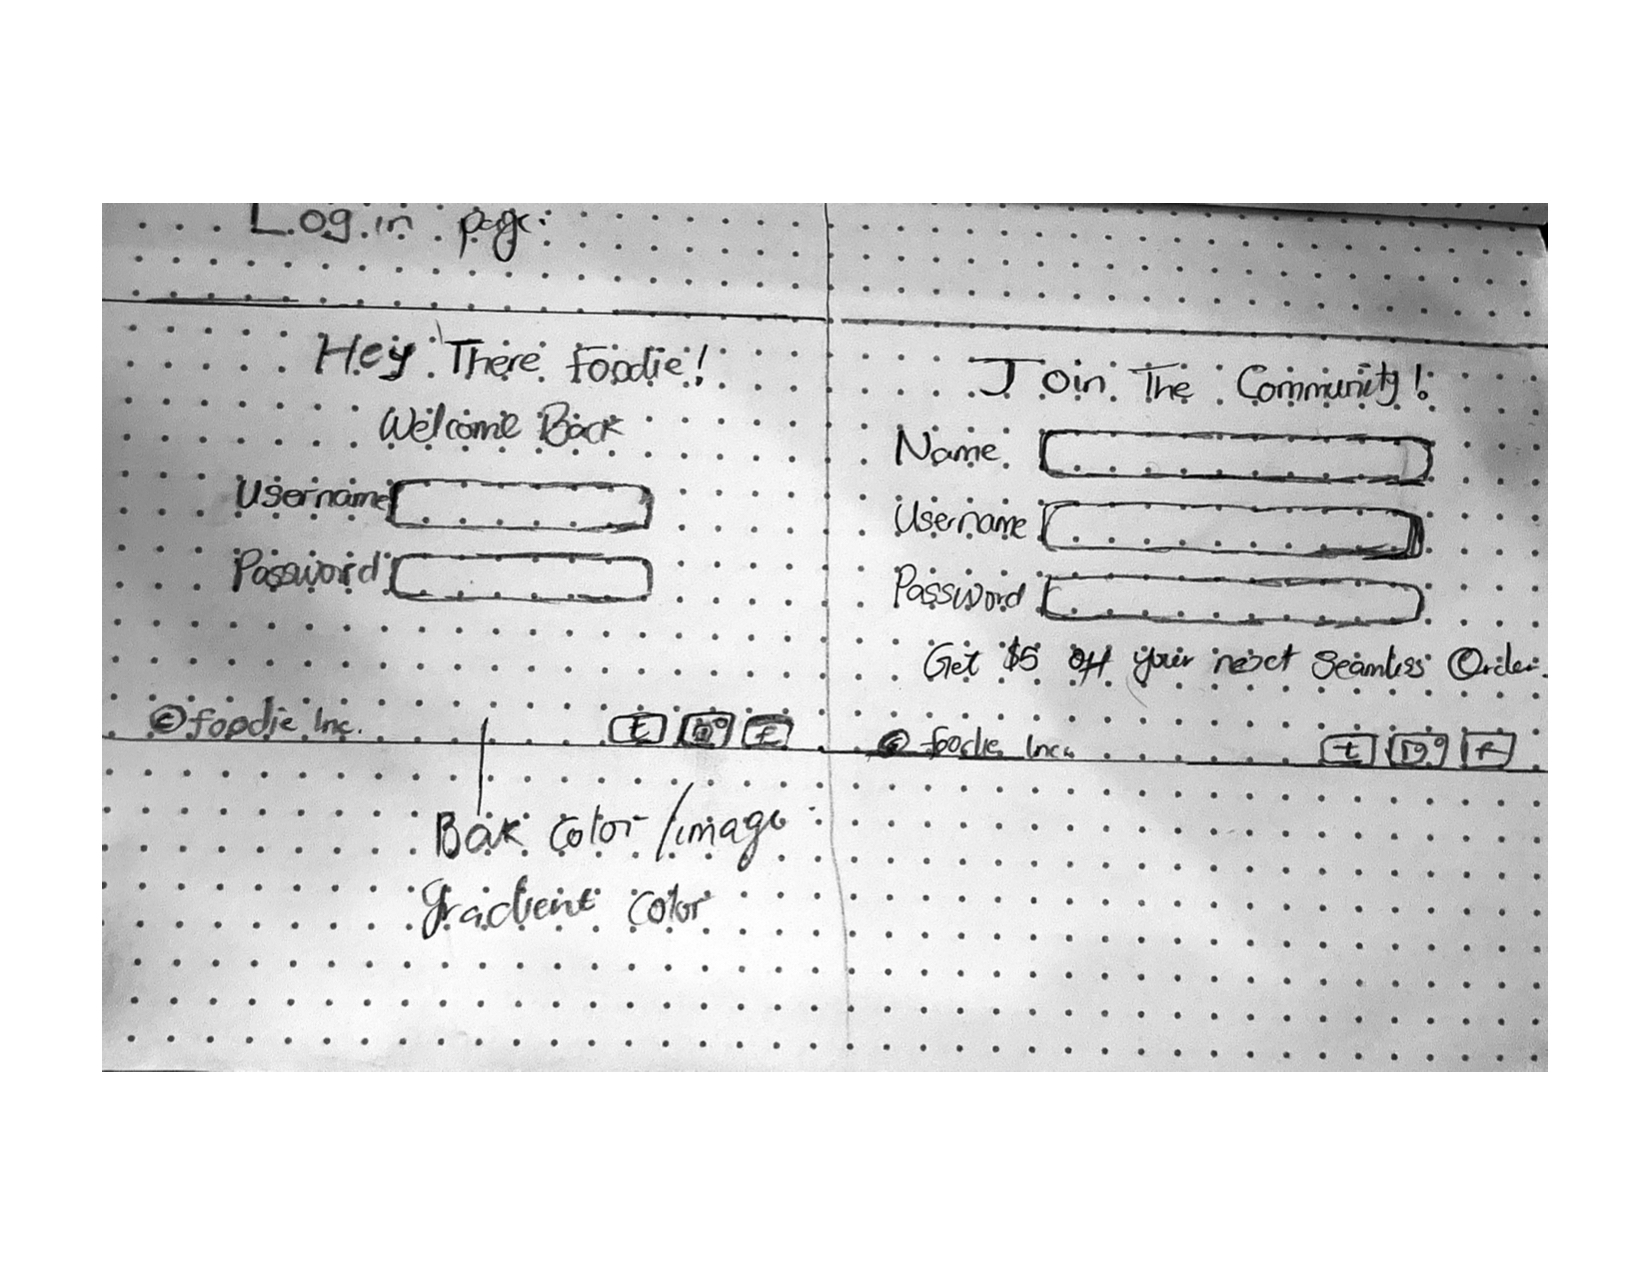 Login page.
Hey There foodie!
Welcome Back
Username
Password
© foodie Inc.
t
f
Back color / image
gradient color
Join The Community!
Name
Username
Password
Get $5 off your next Seamless Order.
© foodie Inc.
t
f